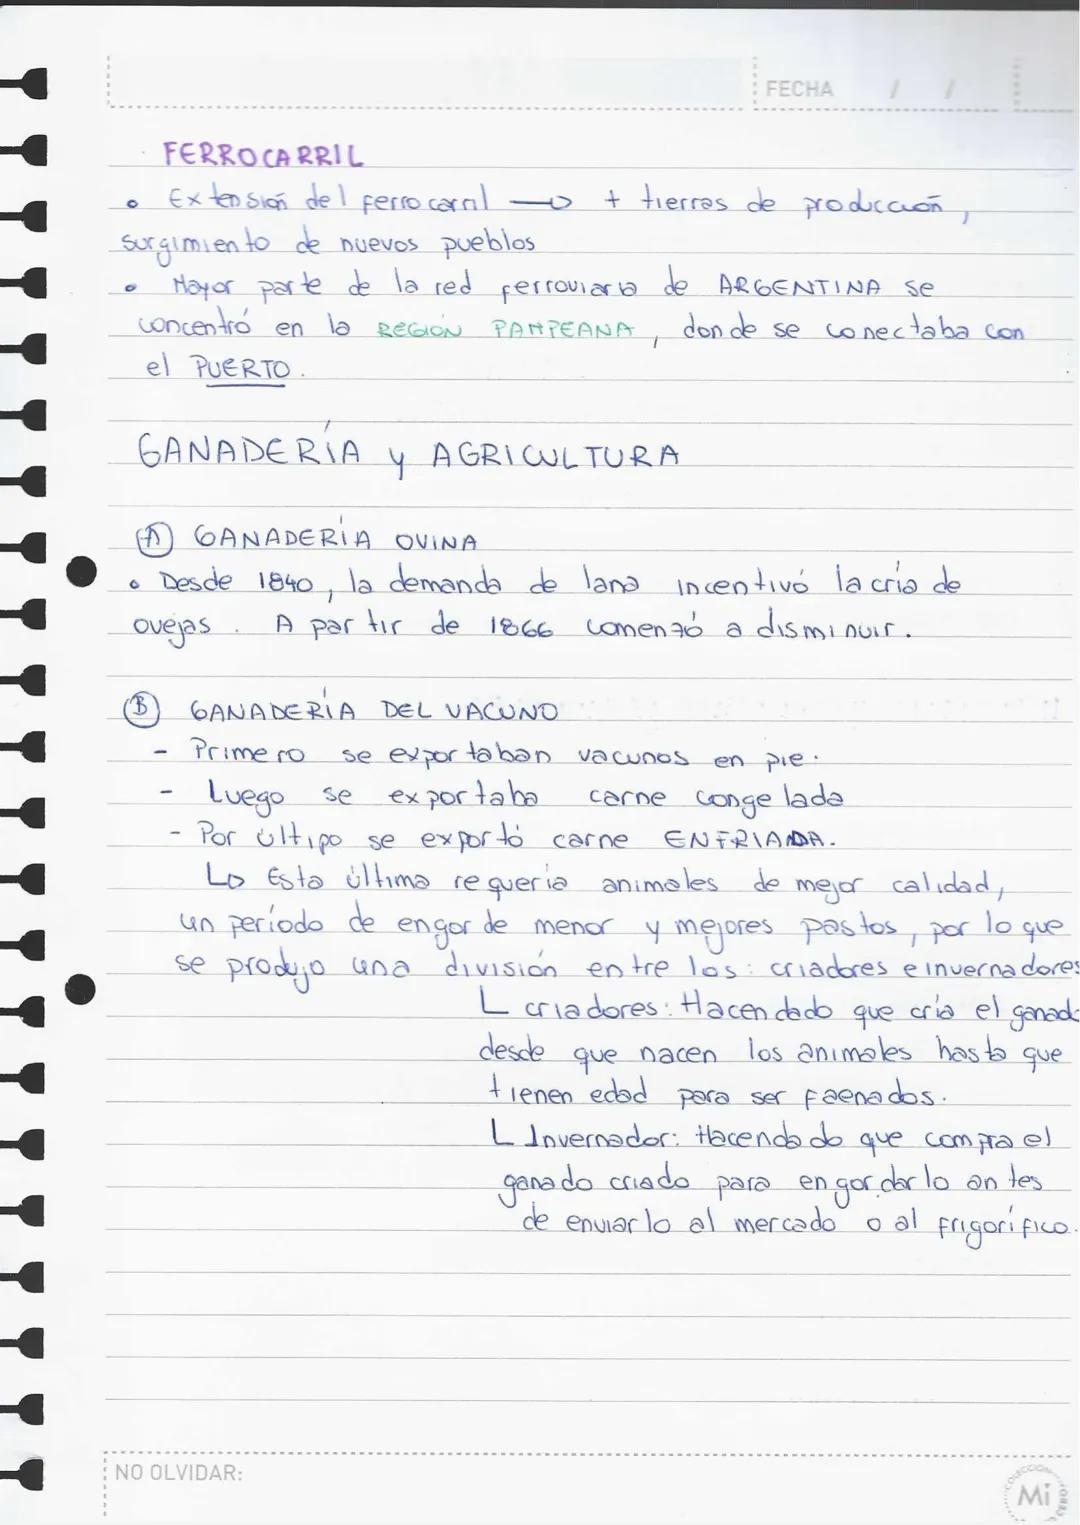 FECHA / /
FERROCARRIL
• Extensión del ferrocarril → + tierras de producción,
surgimiento de nuevos pueblos
• Mayor parte de la red ferroviaria de ARGENTINA se
concentró en la REGIÓN PAMPEANA, donde se conectaba con
el PUERTO.
GANADERÍA y AGRICULTURA
Ⓐ GANADERÍA OVINA
• Desde 1840, la demanda de lana incentivó la cría de
ovejas. A partir de 1866 comenzó a disminuir.
Ⓑ GANADERÍA DEL VACUNO
- Primero se exportaban vacunos en pie.
- Luego se exportaba carne congelada
- Por últipo se exportó carne ENFRIADA.
↳ Esta última requería animales de mejor calidad,
un período de engorde menor y mejores pastos, por lo que
se produjo una división entre los: criadores e invernadores
L criadores: Hacendado que cría el ganado
desde que nacen los animales hasta que
tienen edad para ser faenados.
L Invernador: Hacendado que compra el
ganado criado para engordarlo antes
de enviarlo al mercado o al frigorífico.
NO OLVIDAR:
COLECCION
Mi